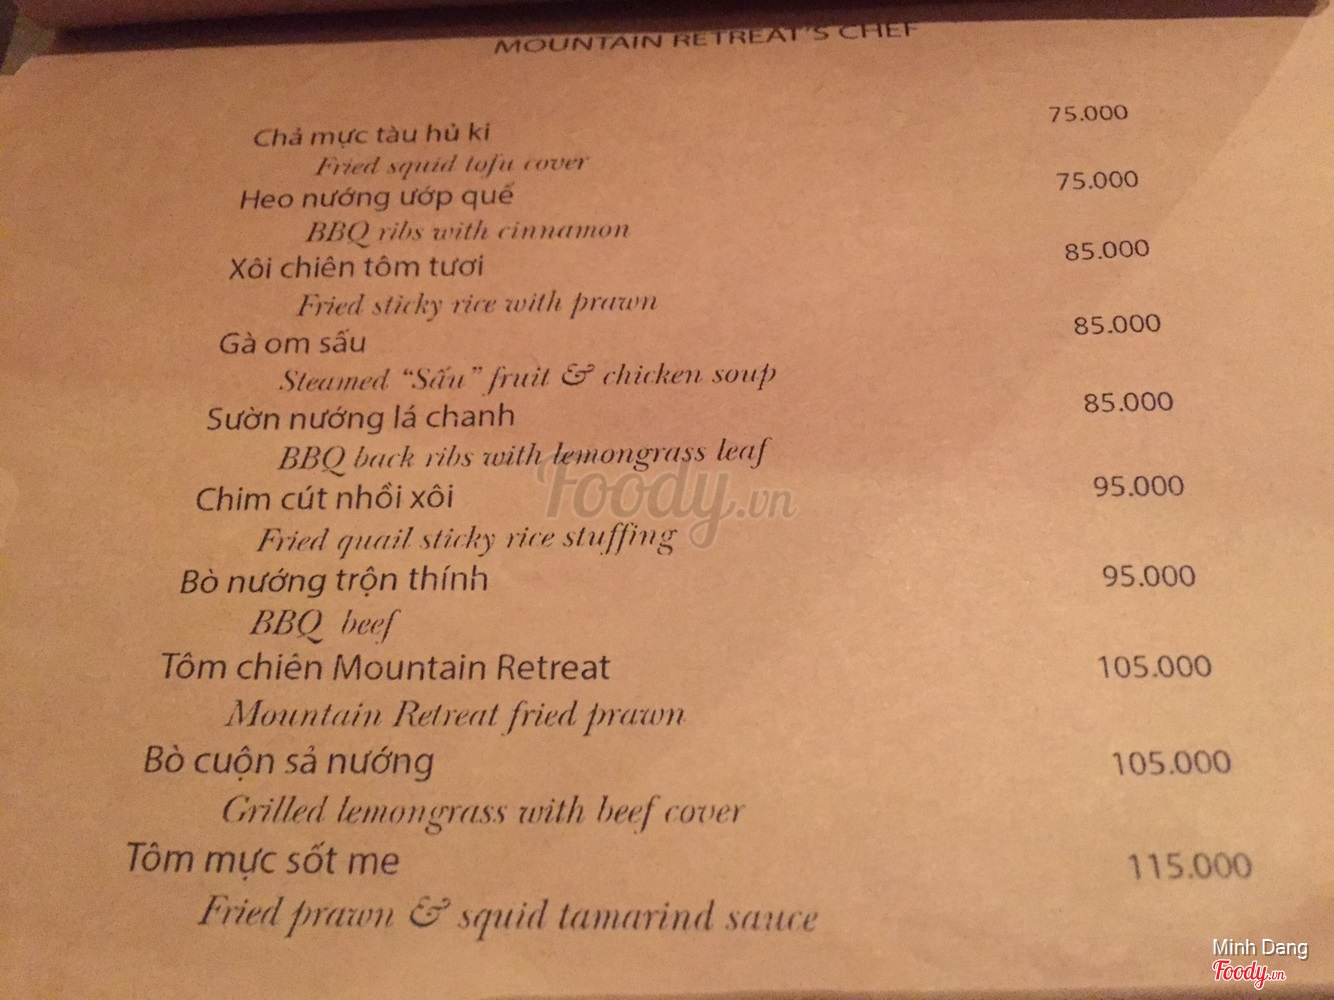 MOUNTAIN RETREAT'S CHEF
Chả mực tàu hủ ki 75.000
Fried squid tofu cover
Heo nướng ướp quế 75.000
BBQ ribs with cinnamon
Xôi chiên tôm tươi 85.000
Fried sticky rice with prawn
Gà om sấu 85.000
Steamed "Sấu" fruit & chicken soup
Sườn nướng lá chanh 85.000
BBQ back ribs with lemongrass leaf
Chim cút nhồi xôi 95.000
Fried quail sticky rice stuffing
Bò nướng trộn thính 95.000
BBQ beef
Tôm chiên Mountain Retreat 105.000
Mountain Retreat fried prawn
Bò cuộn sả nướng 105.000
Grilled lemongrass with beef cover
Tôm mực sốt me 115.000
Fried prawn & squid tamarind sauce
Foody.vn
Minh Dang
Foody.vn